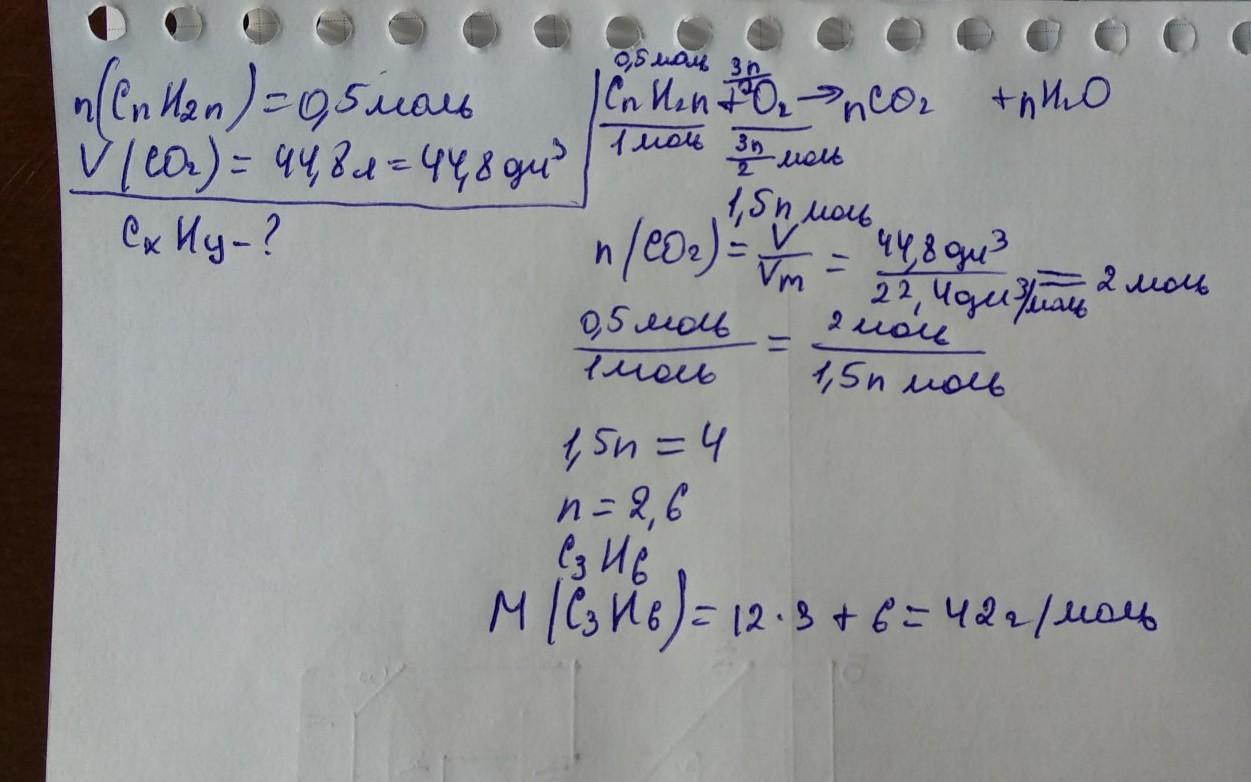 n(CnH2n) = 0,5 моль
V(CO2) = 44,8 л = 44,8 дм³
CxHy - ?
0,5 моль 3n/2
CnH2n + O2 → nCO2 + nH2O
1 моль 3n/2 моль
1,5n моль
n(CO2) = V/Vm = 44,8 дм³ / 22,4 дм³/моль = 2 моль
0,5 моль / 1 моль = 2 моль / 1,5n моль
1,5n = 4
n = 2,6
C3H6
M(C3H6) = 12 · 3 + 6 = 42 г/моль